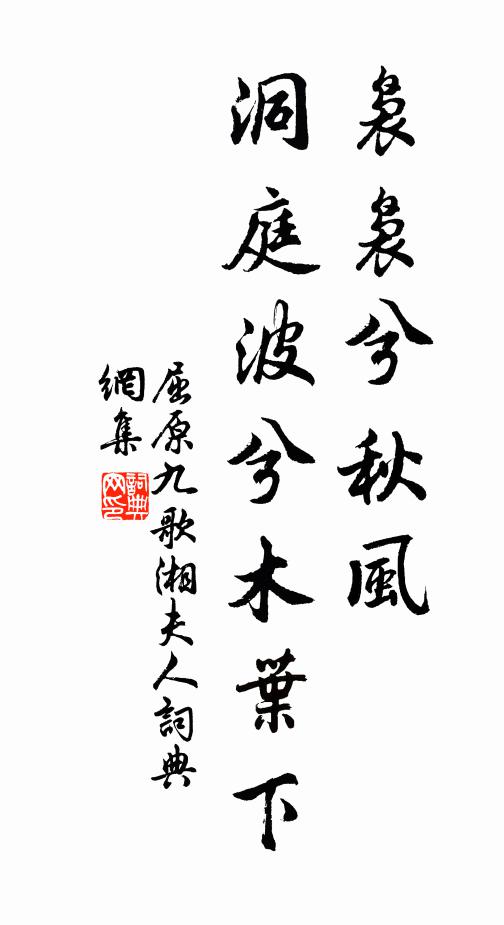 裊裊兮秋風
洞庭波兮木葉下
屈原九歌湘夫人詞典
網集
詞典
网印